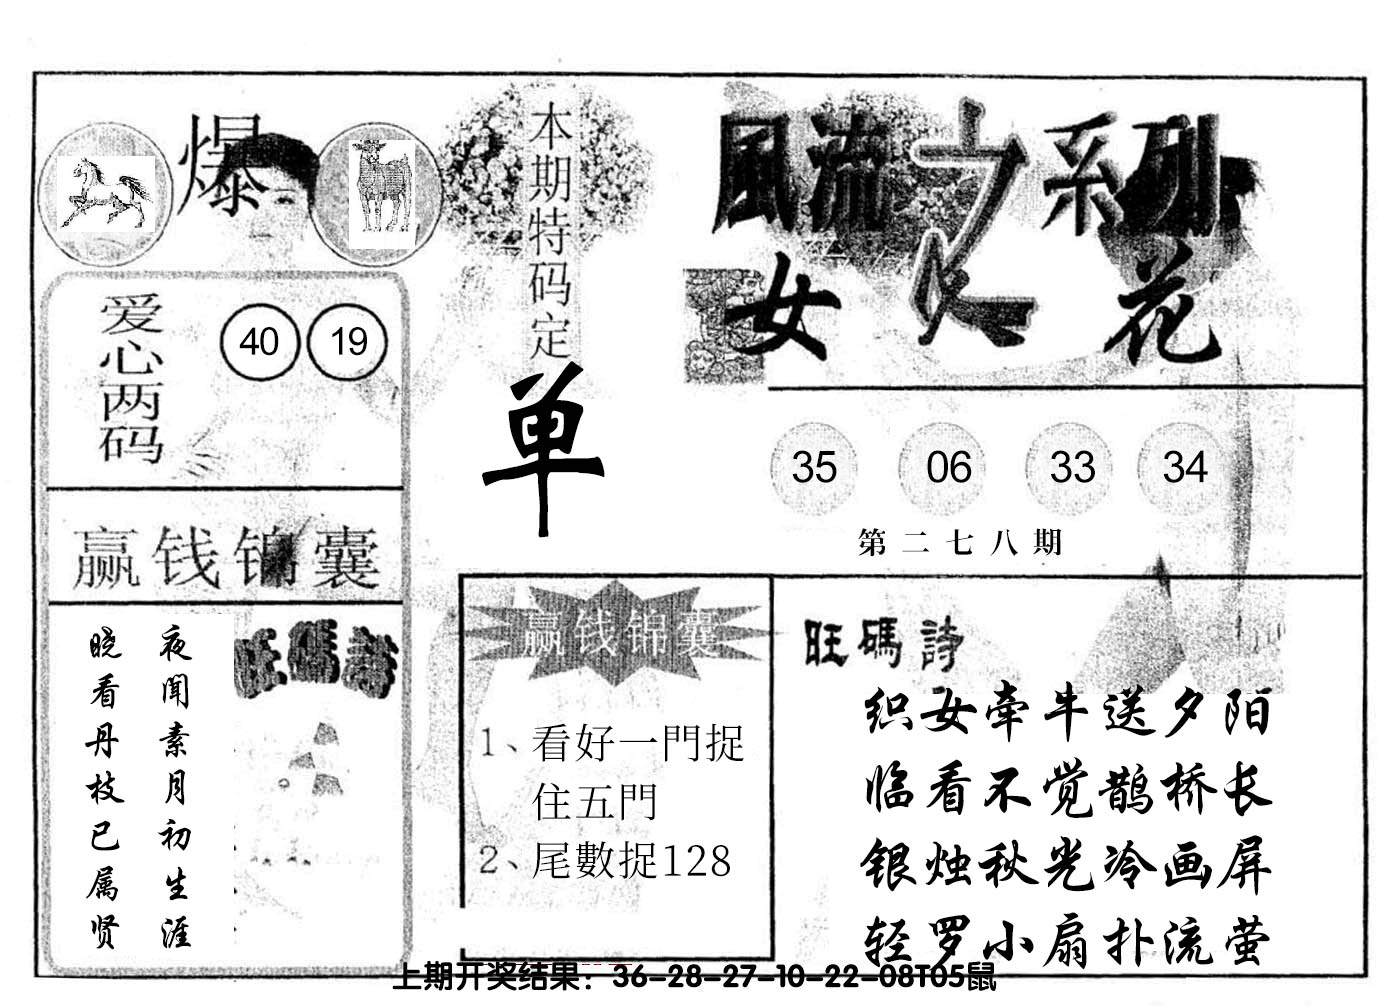 爆
本期特码定
单
風流之系列
女人花
爱心两码
40 19
35 06 33 34
第二七八期
赢钱锦囊
夜闻素月初生涯
晓看丹枝已属贤
旺碼詩
赢钱锦囊
1、看好一門捉
住五門
2、尾數捉128
旺碼詩
织女牵牛送夕阳
临看不觉鹊桥长
银烛秋光冷画屏
轻罗小扇扑流萤
上期开奖结果：36-28-27-10-22-08T05鼠